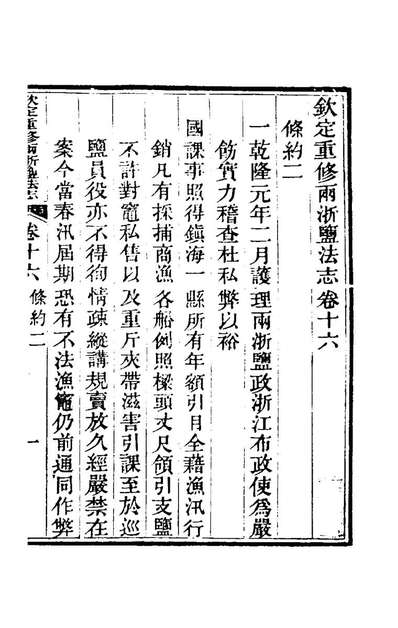 欽定重修兩浙鹽法志卷十六
條約二
一乾隆元年二月護理兩浙鹽政浙江布政使爲嚴
飭實力稽查杜私弊以裕
國課事照得鎮海一縣所有年額引目全藉漁汛行
銷凡有採捕商漁各船例照樑頭丈尺領引支鹽
不許對竈私售以及重斤夾帶滋害引課至於巡
鹽員役亦不得徇情疎縱講規賣放久經嚴禁在
案今當春汛屆期恐有不法漁竈仍前通同作弊
欽定重修兩浙鹽法志
卷十六
條約二
一